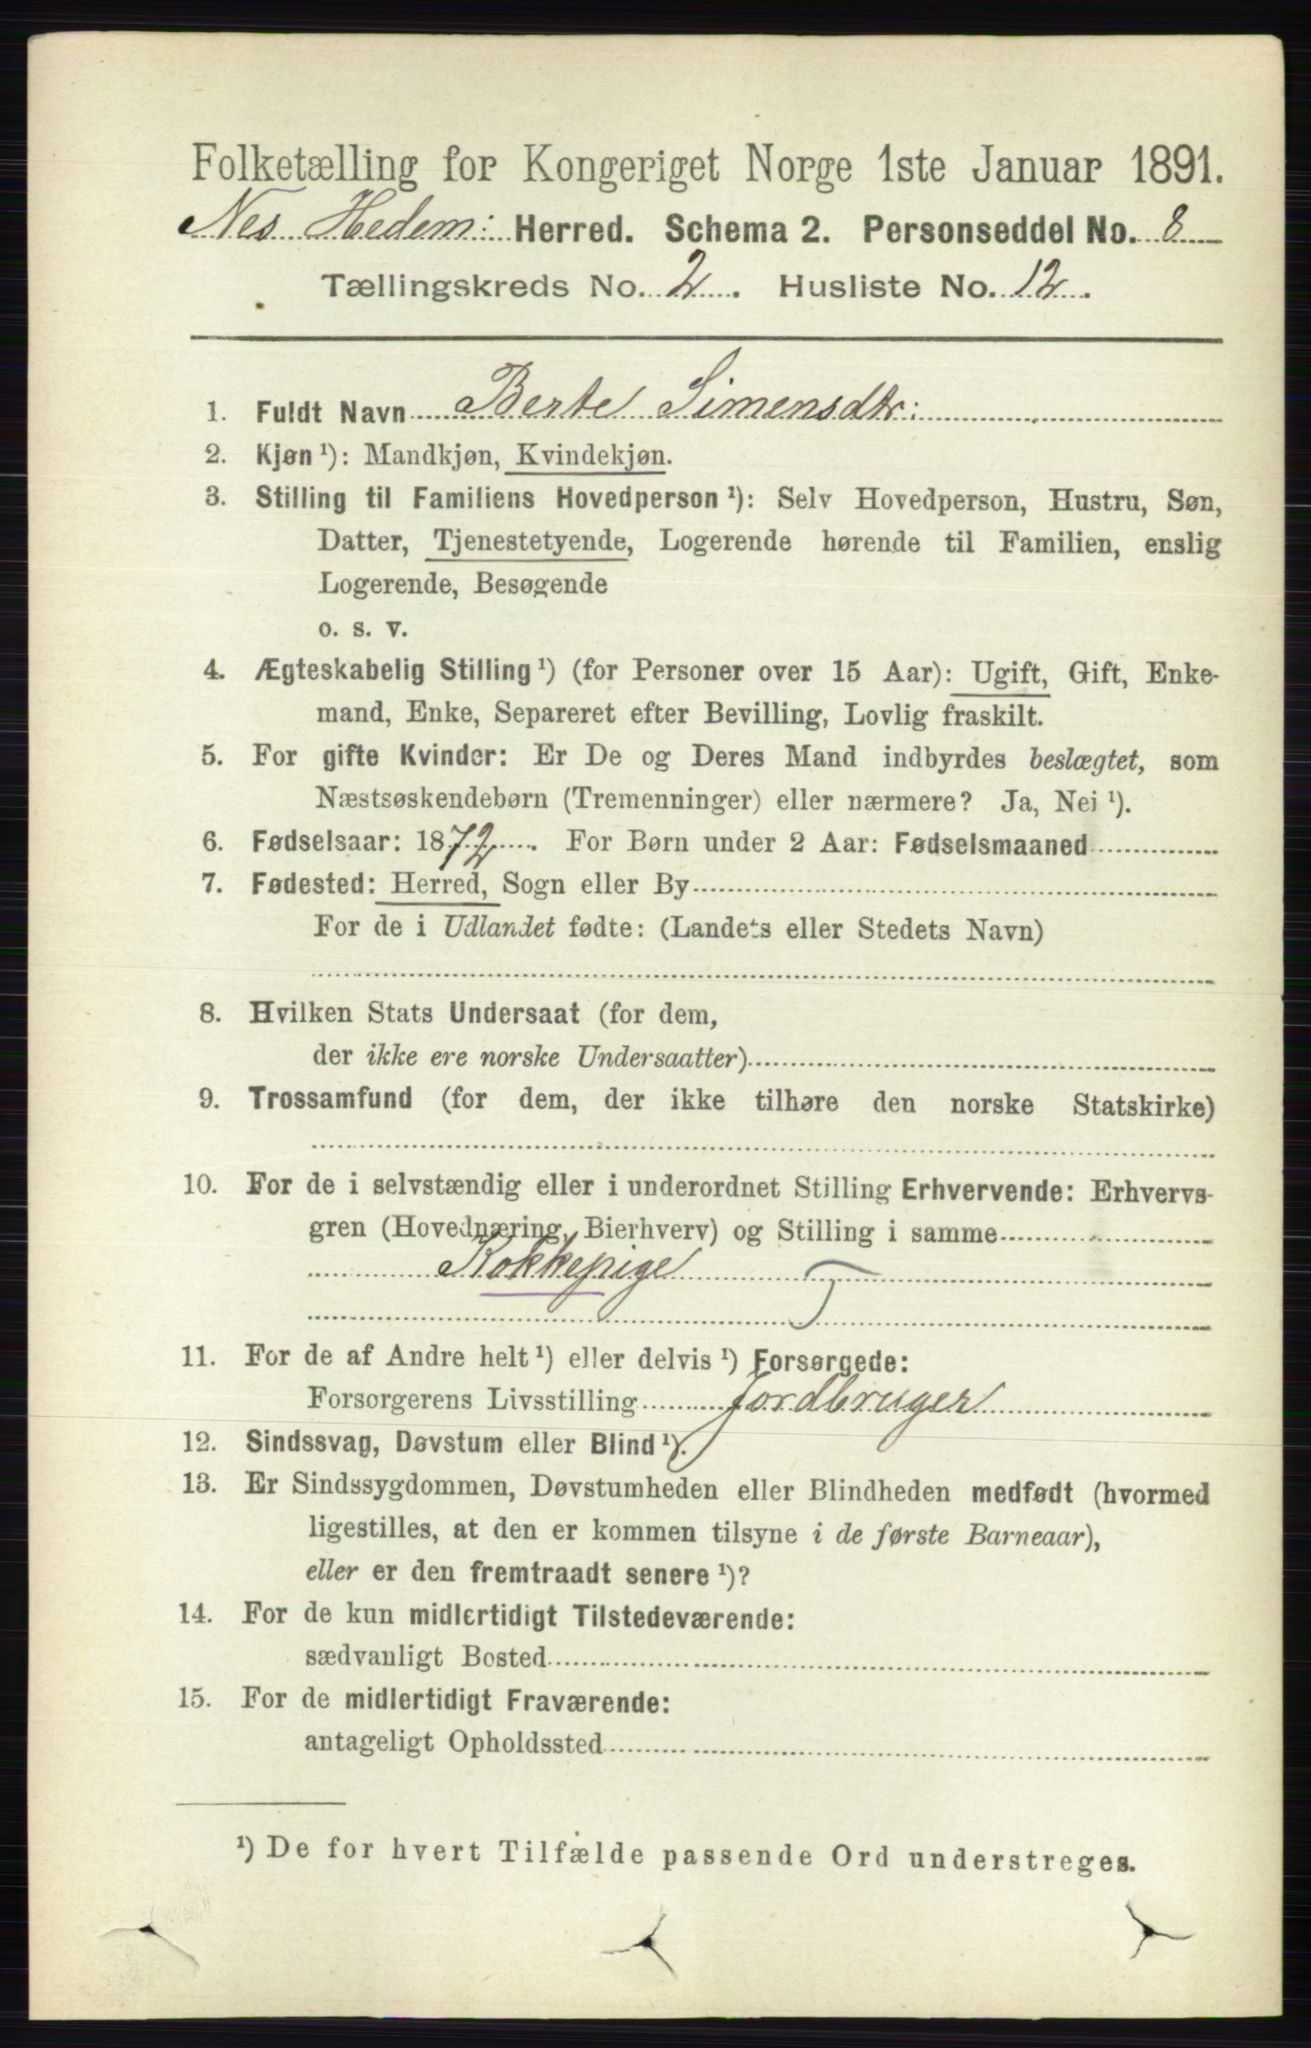 Folketælling for Kongeriget Norge 1ste Januar 1891.
Nes Hedem: Herred. Schema 2. Personseddel No. 8
Tællingskreds No. 2. Husliste No. 12.
1. Fuldt Navn Berte Simensdtr:
2. Kjøn ¹): Mandkjøn, Kvindekjøn.
3. Stilling til Familiens Hovedperson ¹): Selv Hovedperson, Hustru, Søn,
Datter, Tjenestetyende, Logerende hørende til Familien, enslig
Logerende, Besøgende
o. s. v.
4. Ægteskabelig Stilling ¹) (for Personer over 15 Aar): Ugift, Gift, Enke-
mand, Enke, Separeret efter Bevilling, Lovlig fraskilt.
5. For gifte Kvinder: Er De og Deres Mand indbyrdes beslægtet, som
Næstsøskendebørn (Tremenninger) eller nærmere? Ja, Nei ¹).
6. Fødselsaar: 1872. For Børn under 2 Aar: Fødselsmaaned
7. Fødested: Herred, Sogn eller By
For de i Udlandet fødte: (Landets eller Stedets Navn)
8. Hvilken Stats Undersaat (for dem,
der ikke ere norske Undersaatter)
9. Trossamfund (for dem, der ikke tilhøre den norske Statskirke)
10. For de i selvstændig eller i underordnet Stilling Erhvervende: Erhvervs-
gren (Hovednæring, Bierhverv) og Stilling i samme
Kokkepige T
11. For de af Andre helt ¹) eller delvis ¹) Forsørgede:
Forsorgerens Livsstilling Jordbruger
12. Sindssvag, Døvstum eller Blind ¹).
13. Er Sindssygdommen, Døvstumheden eller Blindheden medfødt (hvormed
ligestilles, at den er kommen tilsyne i de første Barneaar),
eller er den fremtraadt senere ¹)?
14. For de kun midlertidigt Tilstedeværende:
sædvanligt Bosted
15. For de midlertidigt Fraværende:
antageligt Opholdssted
¹) De for hvert Tilfælde passende Ord understreges.